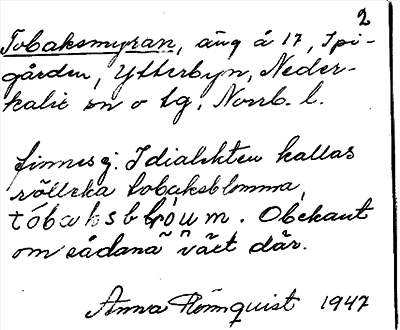 2
Tobaksmyran, äng å 17, Spi-
gården, Ytterbyn, Neder-
kalix sn o tg. Norrb. l.
finnes ej. I dialekten kallas
rölleka tobaksblomma,
tóbaksblóum. Obekant
om sådana växt där.
Anna Rönnquist 1947